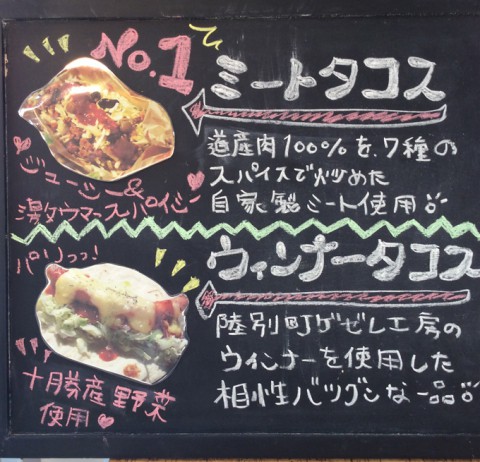 No.1
ミートタコス
道産肉100%を、7種の
スパイスで炒めた
自家製ミート使用
ジューシー&
激ウマスパイシー
ウィンナータコス
パリッっ!
陸別町ゲゼレ工房の
ウィンナーを使用した
相性バツグンな一品
十勝産野菜
使用